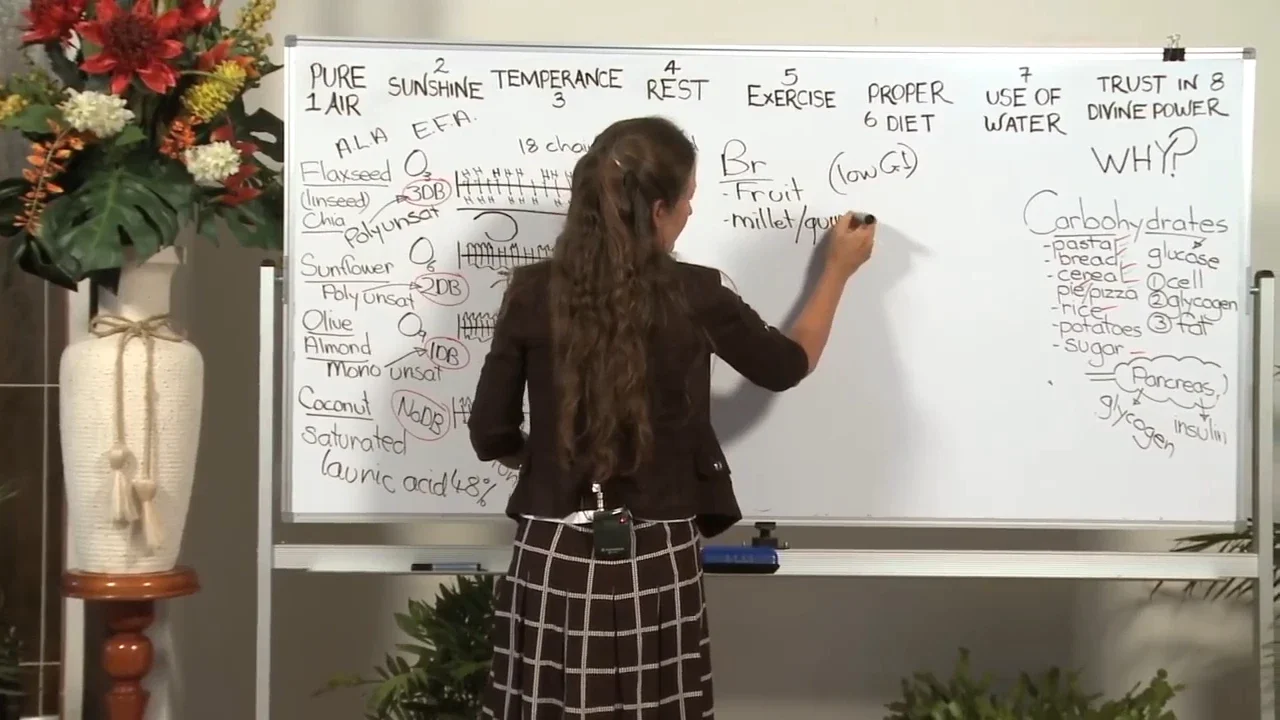 PURE
1 AIR
2
SUNSHINE
TEMPERANCE
3
4
REST
5
EXERCISE
PROPER
6 DIET
7
USE OF
WATER
TRUST IN 8
DIVINE POWER
WHY?
A.L.A E.F.A.
Flaxseed O3
(linseed) 3DB
Chia
Polyunsat
18
Sunflower O6
Poly unsat 2DB
Olive O9
Almond 1DB
Mono unsat
Coconut NoDB
Saturated
Launic acid 48%
Br (low G.I)
- Fruit
- millet/qu
Carbohydrates
- pasta
- bread
- cereal
pie/pizza
- rice
- potatoes
- sugar
glucose
1 cell
2 glycogen
3 fat
Pancreas
glycogen
insulin